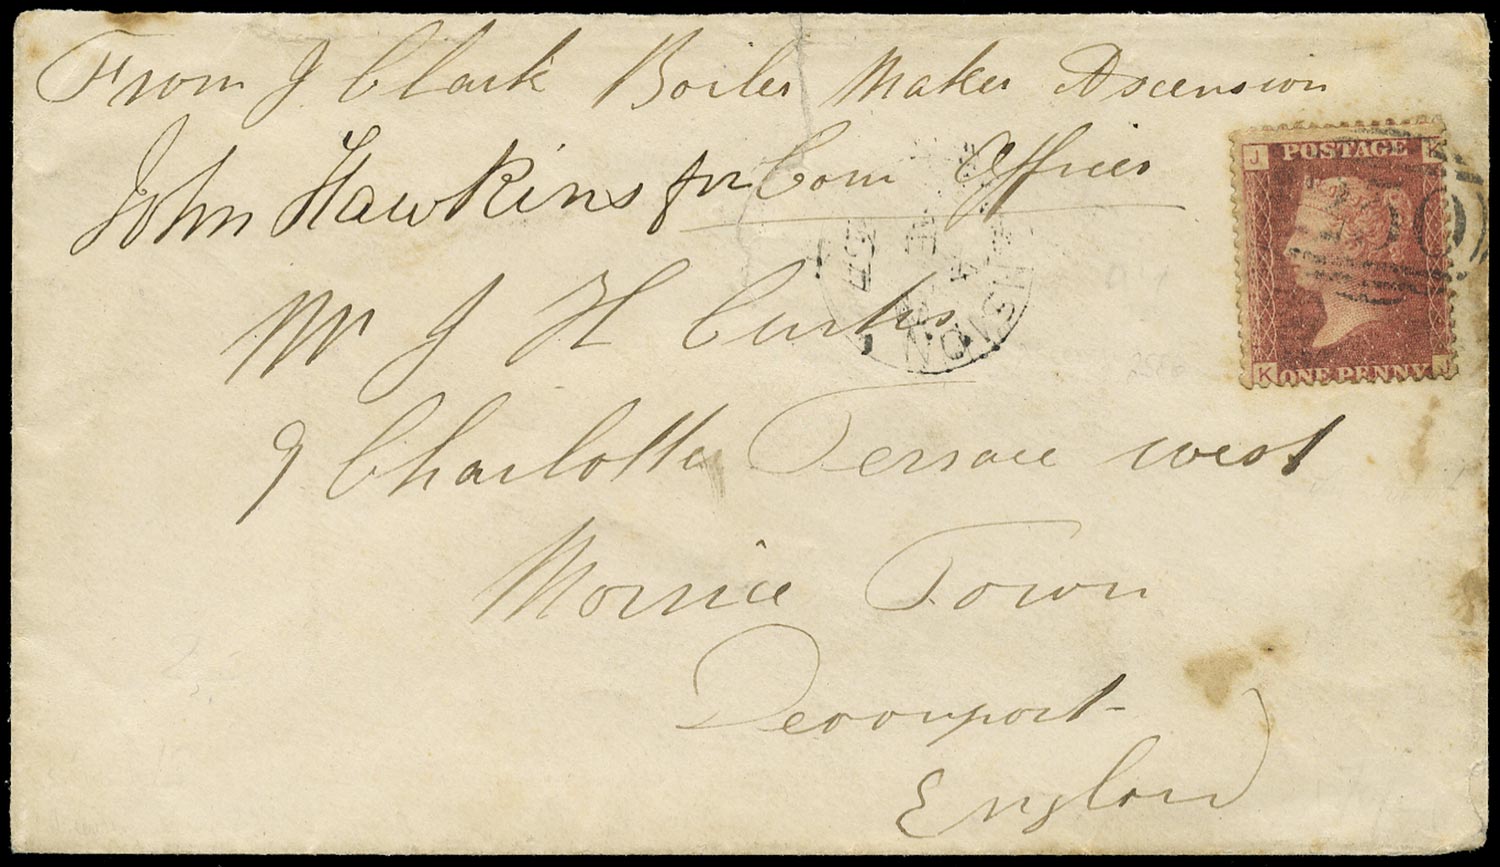 From J Clark Boiler Maker Ascension
John Hawkins for Com Officer
Mr J H Curtis
9 Charlotte Terrace west
Morrice Town
Devonport
England
J K
POSTAGE
K J
ONE PENNY